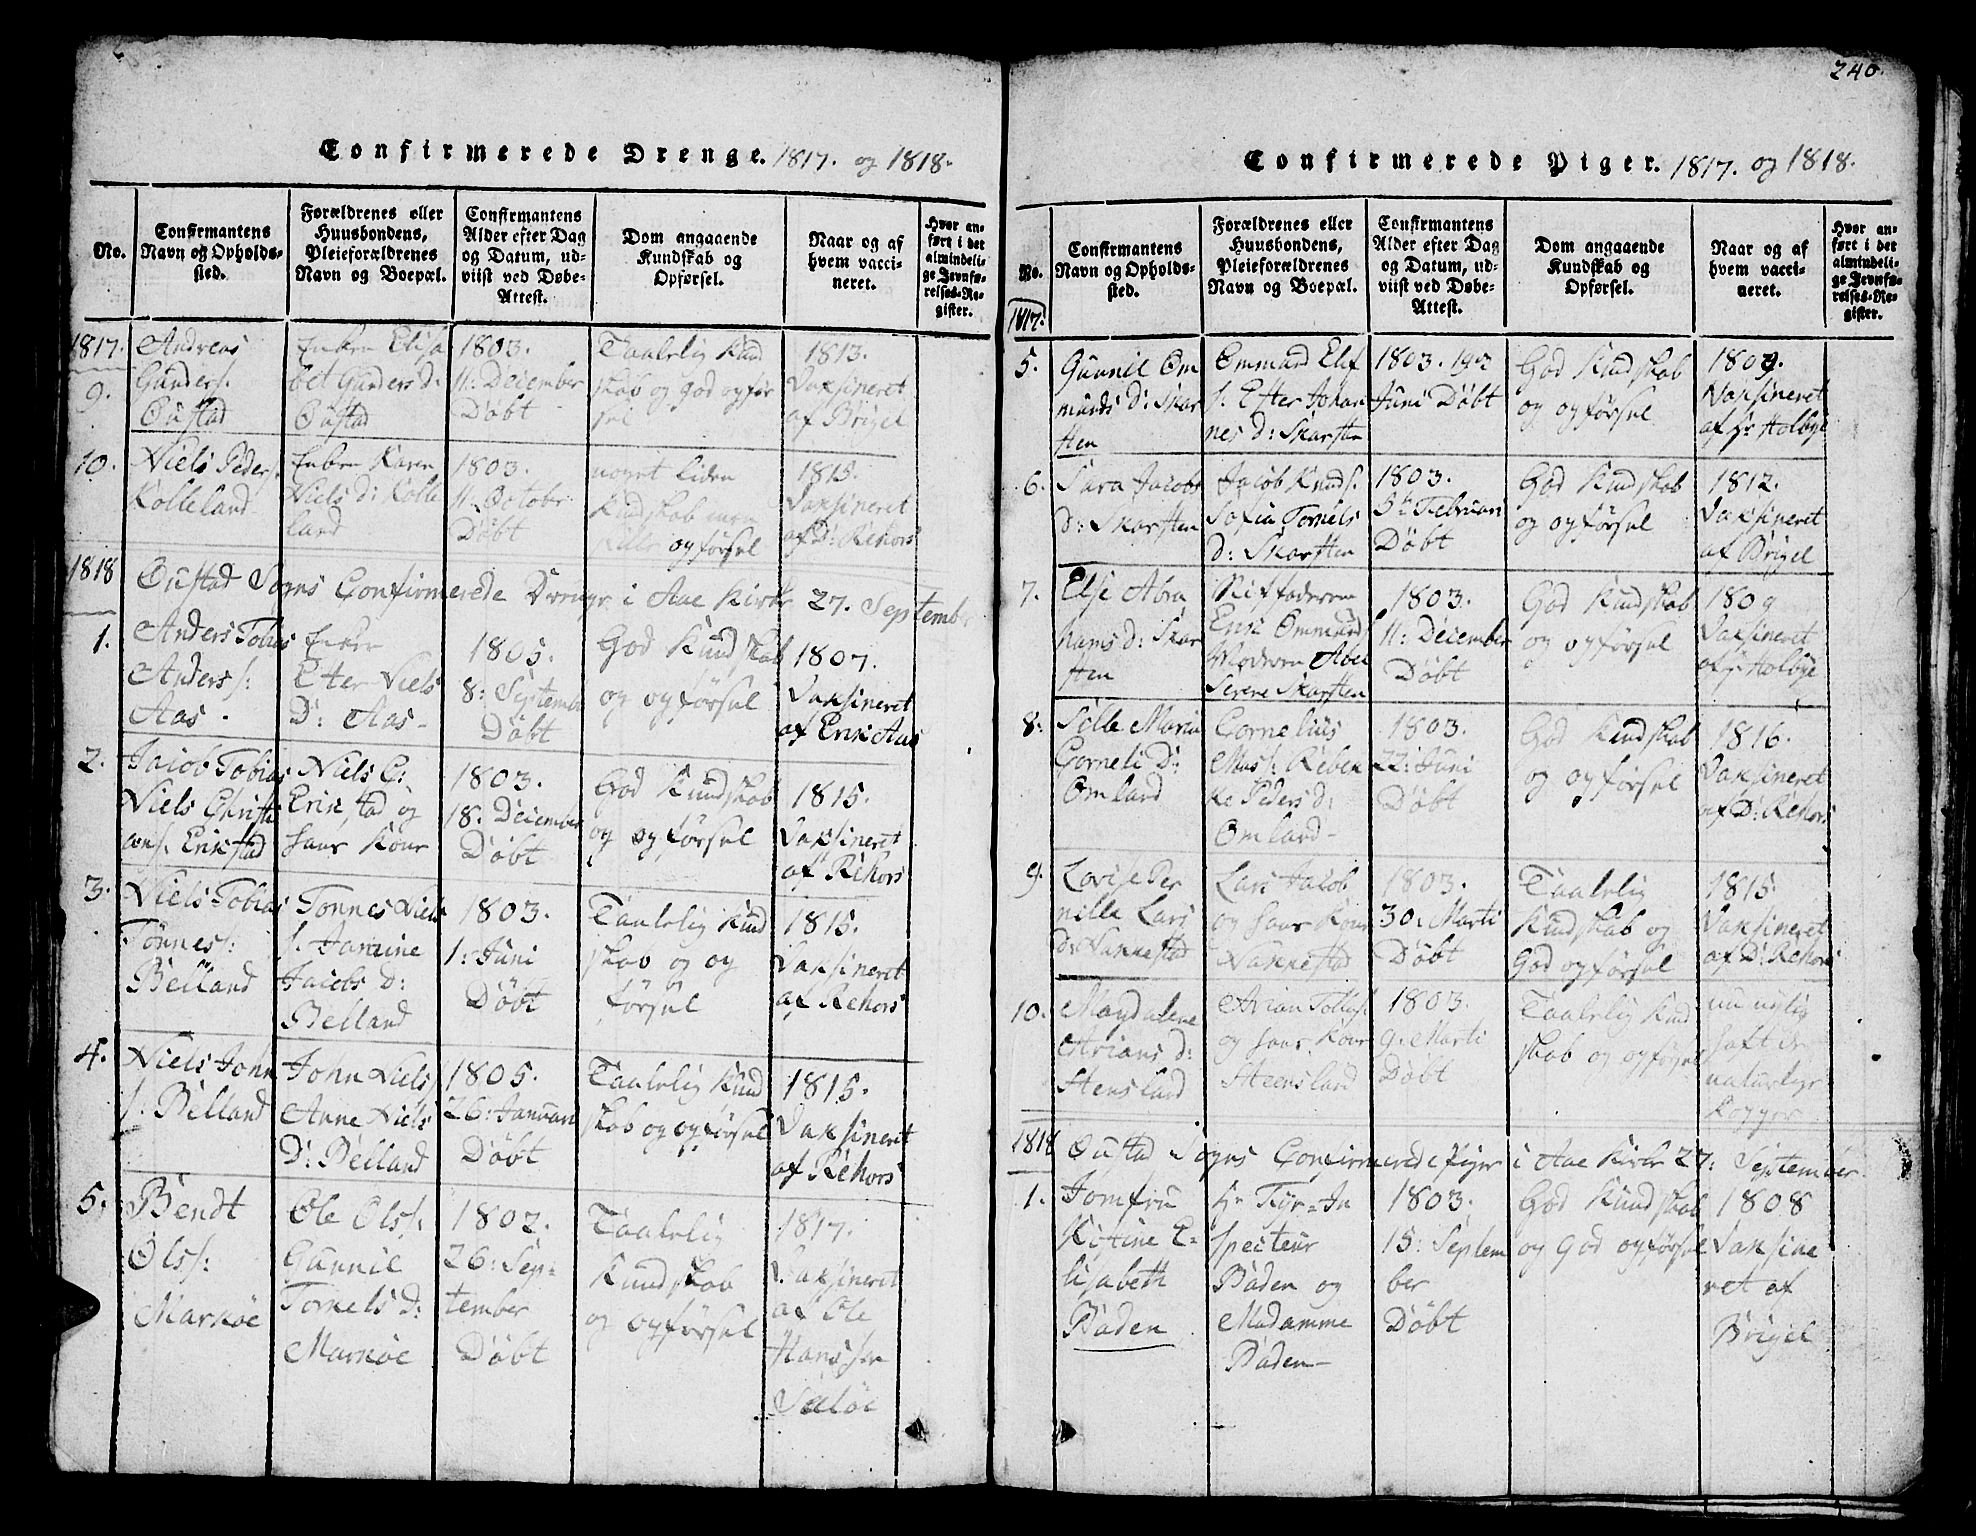 Confirmerede Drenge. 1817. og 1818.
No.
Confirmantens
Navn og Opholds-
sted.
Forældrenes eller
Huusbondens,
Pleieforældrenes
Navn og Boepæl.
Confirmantens
Alder efter Dag
og Datum, ud-
viist ved Døbe-
Attest.
Dom angaaende
Kundskab og
Opførsel.
Naar og af
hvem vacci-
neret.
Hvor an-
ført i det
almindeli-
ge Jevnfø-
relses-Re-
gister.
1817.
9.
Andreas
Gunders.
Oustad
Enken Elisa
bet Gunders d:
Oustad
1803.
11: December
Døbt
Taalelig Kund
skab og god opfør
sel
1813.
Vaksineret
af Brigel
10.
Niels Peders.
Kolleland
Enken Karen
Niels d: Kolle
land
1803.
11. October
Døbt
noget liden
Kundskab men
opførsel
1815.
Vaksineret
af D: Rehors
1818
Oustad Sogns Confirmerede Drenge i Aae Kirke 27. September
1.
Anders Tobias
Anders s:
Aas.
Enken
Eter Niels
D: Aas-
1805.
8: September
Døbt
God Kundskab
og opførsel
1807.
Vaksineret
af Erik Aas
2.
Jacob Tobias
Niels Christi
ans. Erikstad
Niels C:
Erikstad og
hans Kone
1803.
18. December
Døbt
God Kundskab
og opførsel
1815.
Vaksineret
af Rehors
3.
Niels Tobias
Tønnes s:
Belland
Tønnes Niels
s. Jamine
Jacobs D:
Belland
1803.
1: Juni
Døbt
Taalelig Kund
skab og op
førsel
1815.
Vaksineret
af Rehors
4.
Niels John
s. Belland
John Niels
Anne Niels
D: Belland
1805.
26: Januari
Døbt
Taalelig Kund
skab og opførsel
1815.
Vaksineret
af Rehors
5.
Bendt
Ols s:
Markøe
Ole Ols s:
Gunnil
Tornels d:
Markøe
1802.
26: Sep-
tember
Døbt
Taalelig
Kundskab
og opførsel
1817.
Vaksineret
af Ole
Hanssen
Seeløe
240.
Confirmerede Piger. 1817. og 1818.
No.
Confirmantens
Navn og Opholds-
sted.
Forældrenes eller
Huusbondens,
Pleieforældrenes
Navn og Boepæl.
Confirmantens
Alder efter Dag
og Datum, ud-
viist ved Døbe-
Attest.
Dom angaaende
Kundskab og
Opførsel.
Naar og af
hvem vacci-
neret.
Hvor an-
ført i det
almindeli-
ge Jevnfø-
relses-Re-
gister.
1817.
5.
Gunnil Om
munds d: Skar
sten
Ommund Elef
s. Ester Johan
nes d: Skarsten
1803. 19de
Juni Døbt
God Kundskab
og opførsel
1809.
Vaksineret
af Hr Holbye
6.
Sara Jacobs
d: Skarsten
Jacob Knuds.
Sofia Tornels
d: Skarsten
1803.
5te Februari
Døbt
God Kundskab
og opførsel
1812.
Vaksineret
af Brigel
7.
Else Abra
hams d: Skar
sten
Stiffaderen
Erik Ommunds
Moderen Abel
Serene Skarsten
1803.
11: December
Døbt
God Kundskab
og opførsel
1809
Vaksineret
af Hr Holbye
8:
Sille Maria
Corneli D:
Omland
Cornelius
Mass. Rebek
ke Peders d:
Omland-
1803.
22: Juni
Døbt
God Kundskab
og opførsel
1816.
Vaksineret
af D: Rehors
9.
Lovise Per
nille Lars
d: Vannestad
Lars Jacob
og hans Kone
Vannestad
1803.
30: Marti
Døbt
Taalelig
Kundskab og
God opførsel
1815.
Vaksineret
af D: Rehors
10.
Magdalene
Arians d:
Stensland
Arian Tollas.
og hans Kone
Steensland
1803
9. Marti
Døbt
Taalelig Kund
skab og opførsel
nu nylig
haft de
naturlige
Kopper
1818
Oustad Sogns Confirmerede Piger i Aae Kirke 27: September
1.
Jomfru
Kistine E-
lisabeth
Baden
Hr Fyr-In
specteur
Baden og
Madamme
Baden-
1803.
15: Septem
ber
Døbt
God Kundskab
og God opførsel
1808
Vaksine
ret af
Brigel